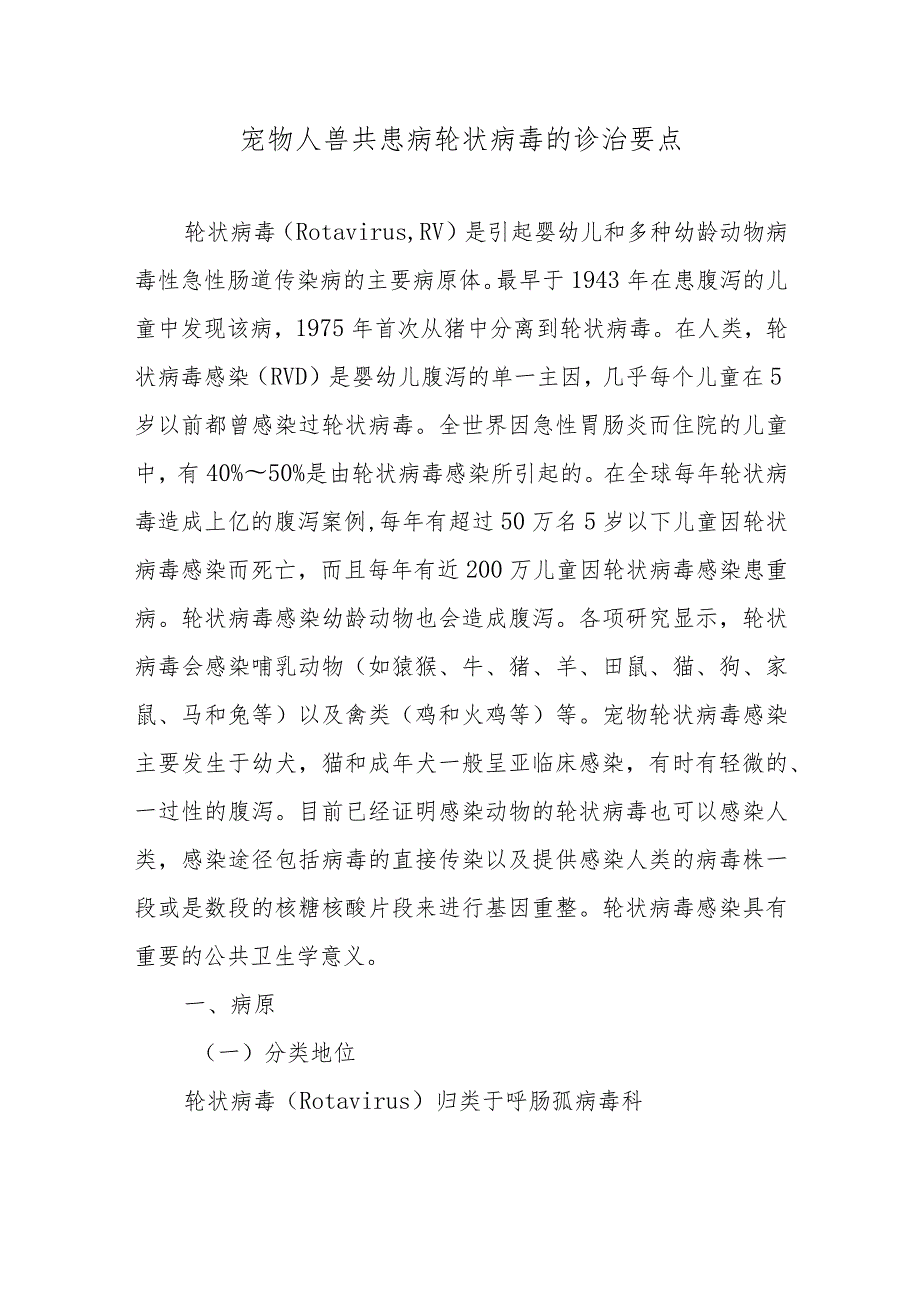 宠物人兽共患病轮状病毒的诊治要点
轮状病毒（Rotavirus,RV）是引起婴幼儿和多种幼龄动物病
毒性急性肠道传染病的主要病原体。最早于1943年在患腹泻的儿
童中发现该病，1975年首次从猪中分离到轮状病毒。在人类，轮
状病毒感染（RVD）是婴幼儿腹泻的单一主因，几乎每个儿童在5
岁以前都曾感染过轮状病毒。全世界因急性胃肠炎而住院的儿童
中，有40%～50%是由轮状病毒感染所引起的。在全球每年轮状病
毒造成上亿的腹泻案例,每年有超过50万名5岁以下儿童因轮状
病毒感染而死亡，而且每年有近200万儿童因轮状病毒感染患重
病。轮状病毒感染幼龄动物也会造成腹泻。各项研究显示，轮状
病毒会感染哺乳动物（如猿猴、牛、猪、羊、田鼠、猫、狗、家
鼠、马和兔等）以及禽类（鸡和火鸡等）等。宠物轮状病毒感染
主要发生于幼犬，猫和成年犬一般呈亚临床感染，有时有轻微的、
一过性的腹泻。目前已经证明感染动物的轮状病毒也可以感染人
类，感染途径包括病毒的直接传染以及提供感染人类的病毒株一
段或是数段的核糖核酸片段来进行基因重整。轮状病毒感染具有
重要的公共卫生学意义。
一、病原
（一）分类地位
轮状病毒（Rotavirus）归类于呼肠孤病毒科